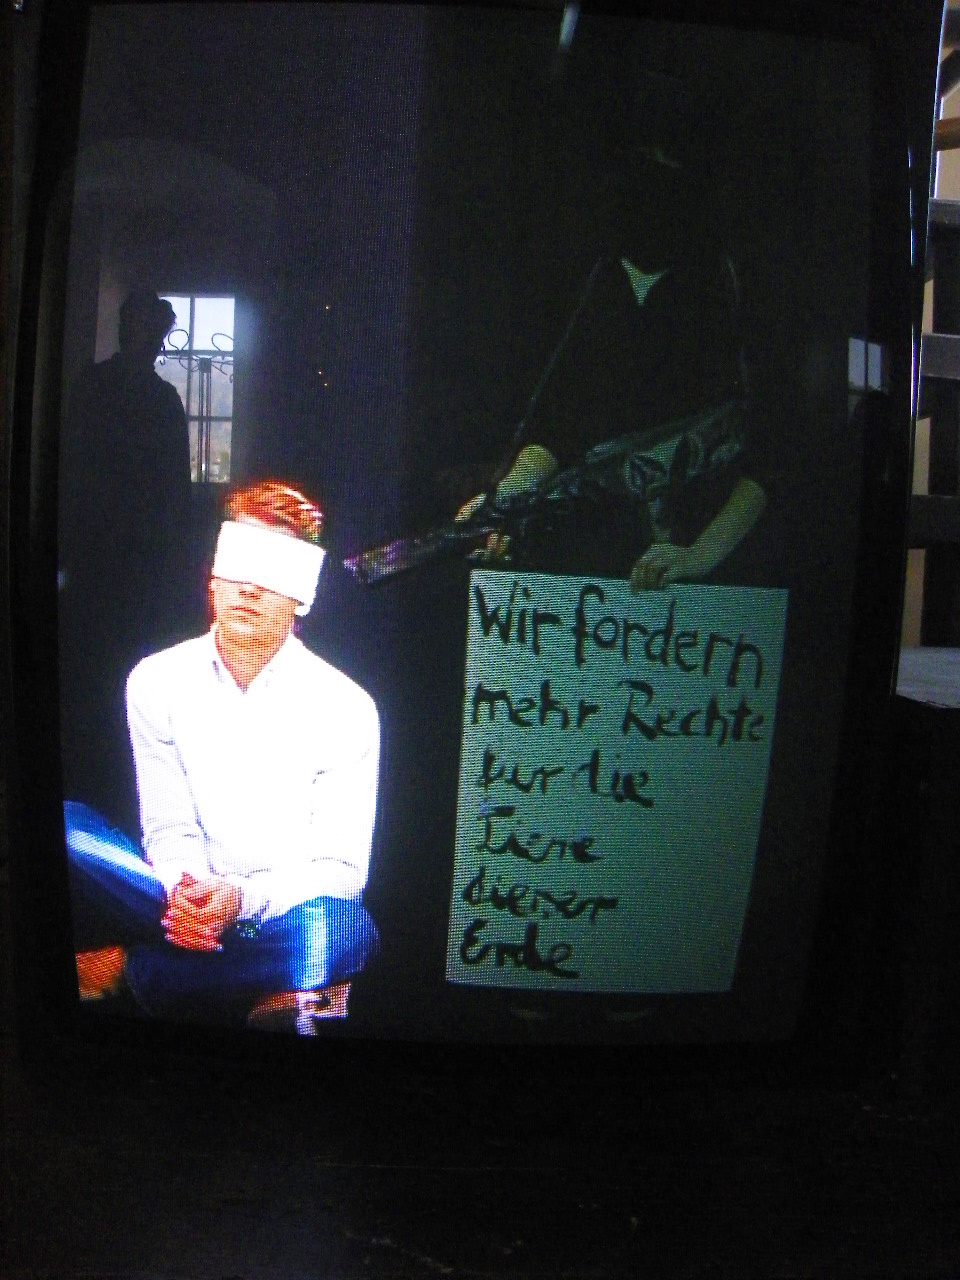 Wir fordern
mehr Rechte
die
Tiere
dieser
Erde